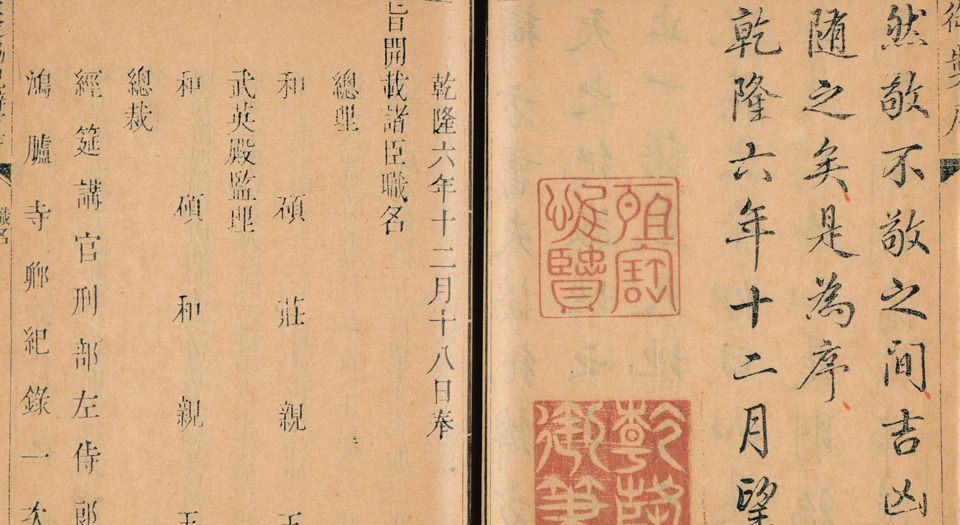 御製序
然敬不敬之間吉凶
随之矣是為序
乾隆六年十二月望
乾隆
御筆
乾隆六年十二月十八日奉
旨開載諸臣職名
總理
和碩莊親王
武英殿監理
和碩和親王
總裁
經筵講官刑部左侍郎
鴻臚寺卿紀錄一次
職名